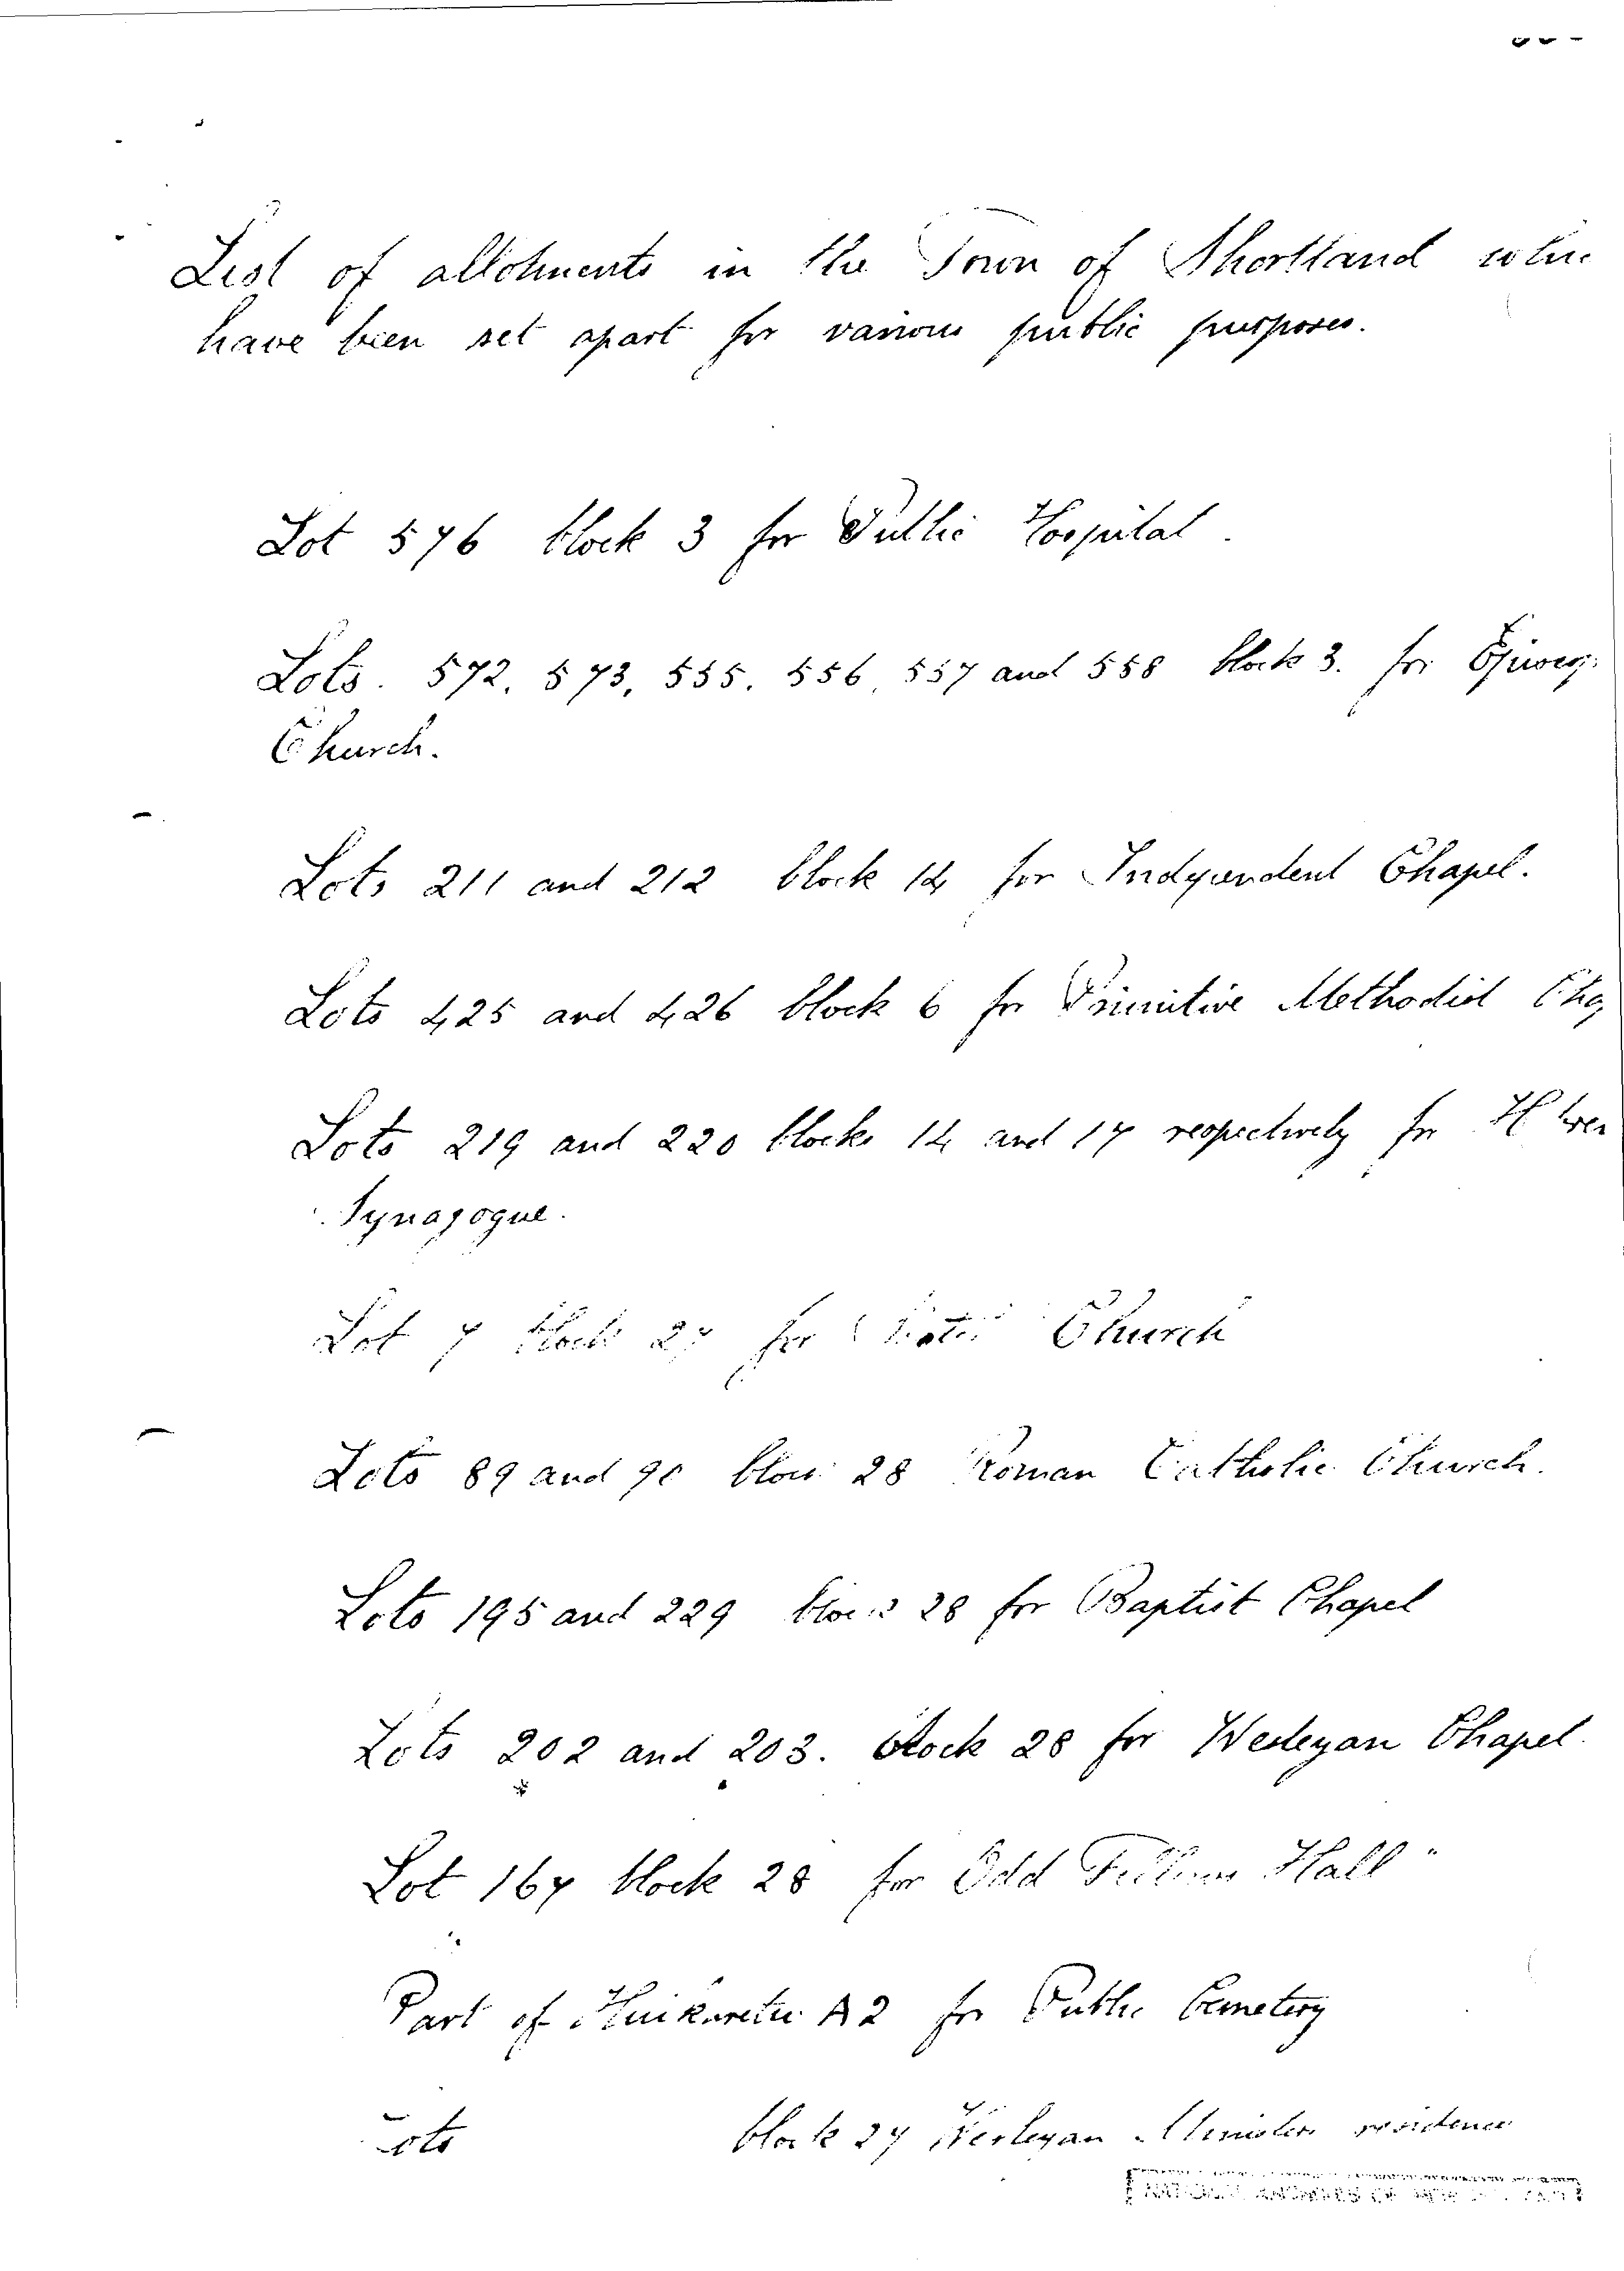 List of allotments in the Town of Shortland
have been set apart for various public purposes.
Lot 576 block 3 for Public Hospital.
Lots. 572. 573, 555. 556, 557 and 558 block 3. for
Church.
Lots 211 and 212 block 14 for Independent Chapel.
Lots 425 and 426 block 6 for Primitive Methodist
Lots 219 and 220 blocks 14 and 17 respectively for
Synagogue.
Lot 7 block 27 for Church
Lots 89 and 90 block 28 Roman Catholic Church.
Lots 195 and 229 block 28 for Baptist Chapel
Lots 202 and 203. block 28 for Wesleyan Chapel.
Lot 167 block 28 for Odd Fellows Hall
Part of A2 for Public Cemetery
block 27 Wesleyan Ministers residence